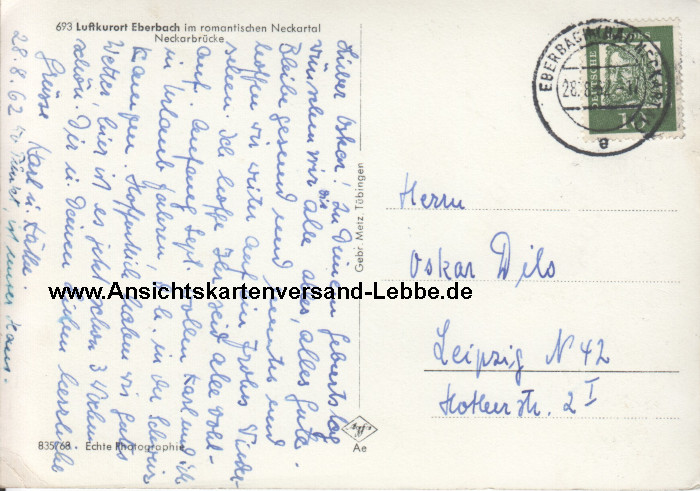 693 Luftkurort Eberbach im romantischen Neckartal
Neckarbrücke
28.8.62
Lieber Oskar! Zu Deinem Geburtstag
wünschen wir Dir alle alles, alles Gute.
Bleibe gesund und und
hoffen wir weiter auf ein frohes Wieder-
sehen. Ich hoffe Ihr seid alle wohl-
auf. Anfang Sept. wollen Karl und ich
in Urlaub fahren, in der Schweiz
Hoffentlich haben wir gutes
Wetter, hier ist es jetzt schon 3 Wochen
schön. Dir u. Deinen Lieben herzliche
Grüsse Karl u.
ist unser Haus.
EBERBACH (BAD) NECKAR
28.8.62
a
DEUTSCHE
10
Gebr. Metz, Tübingen
Herrn
Oskar Dils
www.Ansichtskartenversand-Lebbe.de
Leipzig N 42
str. 2 I
835/68 • Echte Photographie
Agfa
Ae